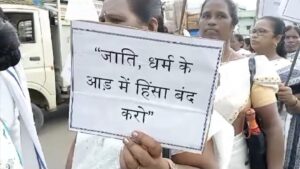 “जाति, धर्म के
आड़ में हिंसा बंद
करो”